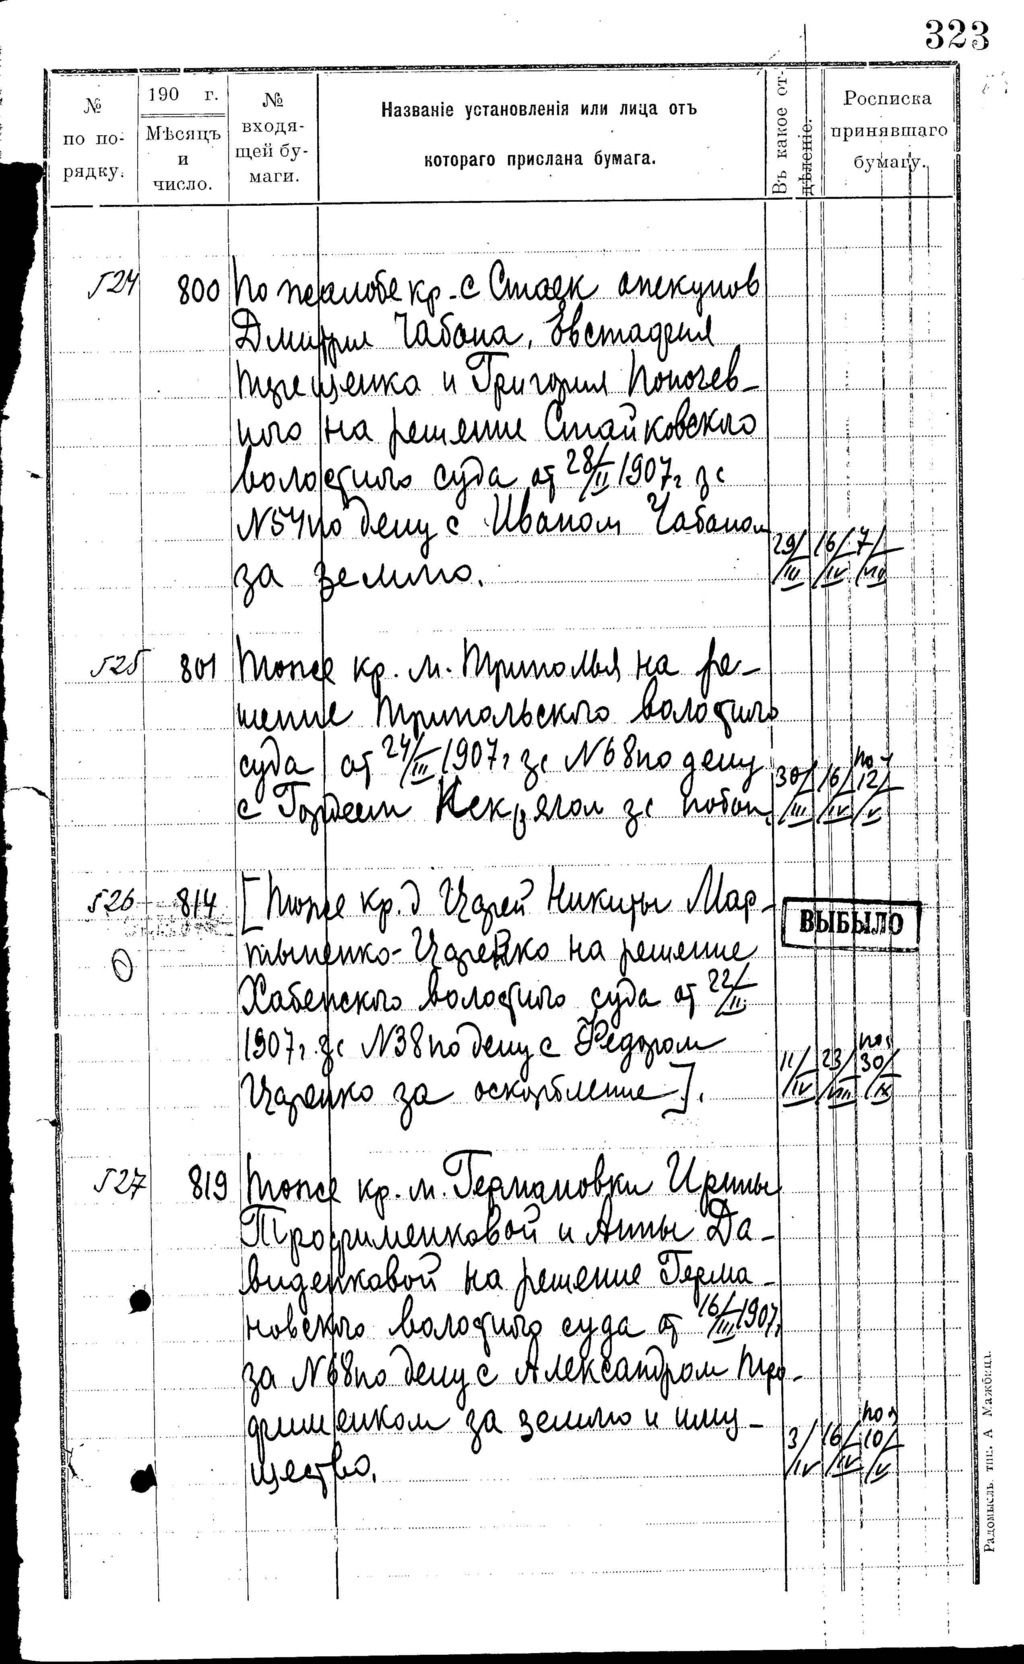 323
№ по по-рядку.
190 г.
Мѣсяцъ и число.
№ входя-щей бу-маги.
Названіе установленія или лица отъ
котораго прислана бумага.
Въ какое от-дѣленіе.
Росписка принявшаго бумагу.
524 800 По жалобе кр. с Стаек опекунов
Дмитрия Чабана, Евстафия
Терещенко и Григория
на решение Стайковского
волостного суда от 28/II 1907 г за
N 54 по делу с Иваном Чабаном
за землю. 29/III 16/IV 7/VII
525 801 Тоже кр. м. Триполья на ре-
шение Трипольского волостного
суда от 24/III 1907 г за N 68 по делу
с Гордеем за побои. 30/III 16/IV 12/V
526 814 [Тоже кр. д Никиты Мар-
ВЫБЫЛО
тыненко- на решение
Хабенского волостного суда от 22/II
1907 г. за N 38 по делу с Федором
за оскорбление]. 11/IV 23/VIII 30/IX
527 819 Тоже кр. м. Германовки Ирины
Трофименковой и Анны Да-
виденковой на решение Герма-
новского волостного суда от 16/III 1907 г
за N 68 по делу с Александром Тро-
фименком за землю и иму-
щество. 3/IV 16/IV 10/V
Радомысль. тип. А Мажбица.